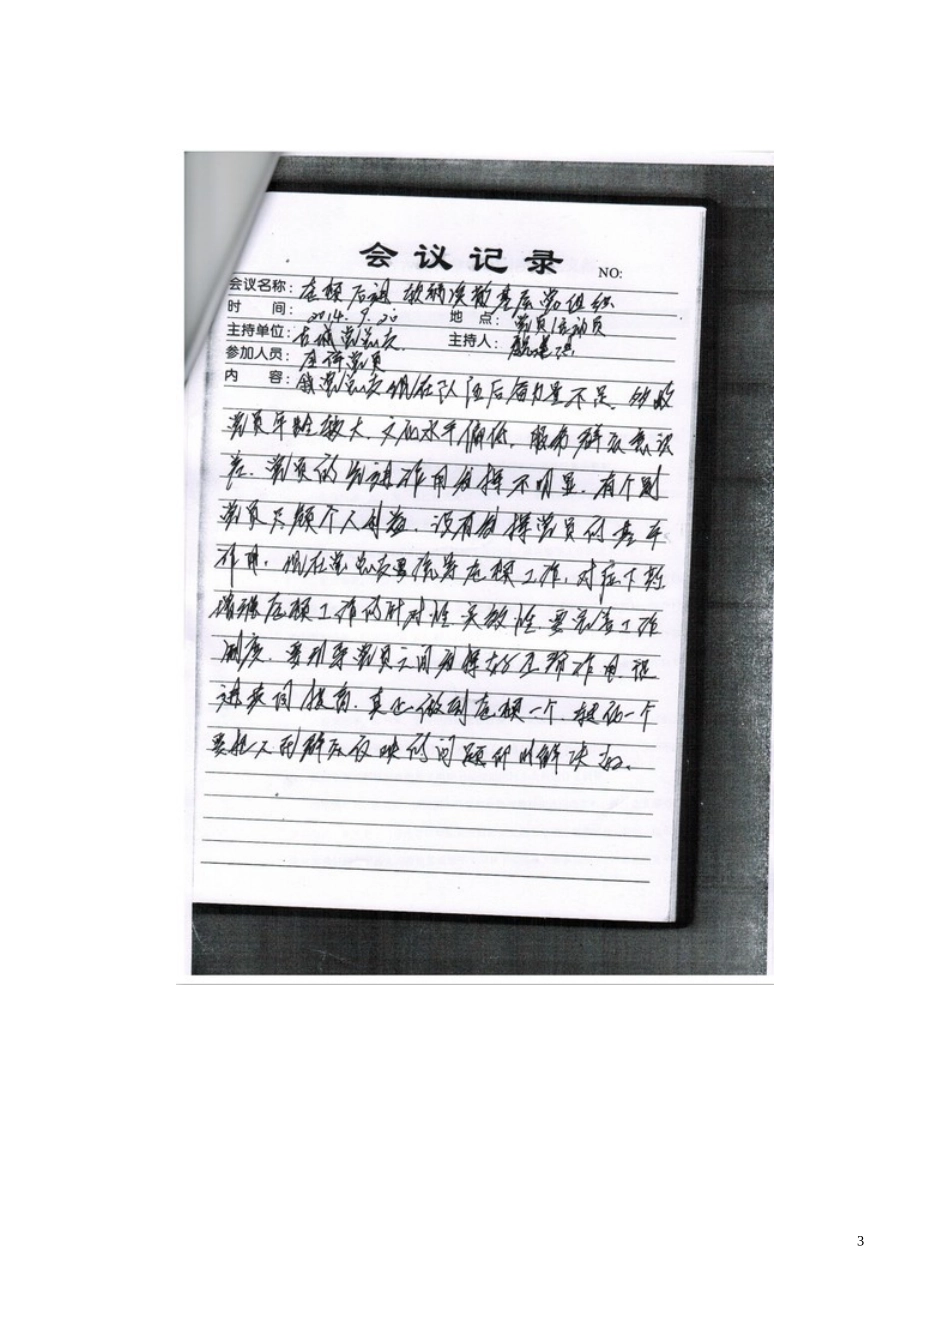 会议记录 NO:
会议名称: 整顿后进软弱涣散基层党组织
时 间: 2014.9.20 地 点: 党员活动室
主持单位: 古城党总支 主持人:
参加人员: 全体党员
内 容: 我党总支现在队伍后备力量不足,
党员年龄较大,文化水平偏低,服务群众意识
差,党员的先进作用发挥不明显,有个别
党员只顾个人利益,没有发挥党员的基本
作用,现在党总支要统筹整顿工作,对症下药
增强整顿工作的针对性实效性,要完善工作
制度,要引导党员之间发挥好互帮作用,促
进共同提高,真正做到整顿一个,
要把 群众反映的问题 解决
3